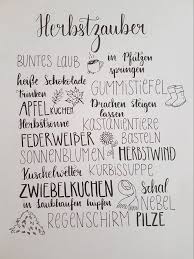 Herbstzauber
BUNTES LAUB in Pfützen
springen
heiße Schokolade
trinken GUMMISTIEFEL
APFELKUCHEN Drachen steigen
lassen
Herbstsonne KASTANIENTIERE
FEDERWEIßER Basteln
SONNENBLUMEN HERBSTWIND
Kuschelwetter KÜRBISSUPPE
ZWIEBELKUCHEN Schal
in Laubhaufen hüpfen NEBEL
REGENSCHIRM PILZE